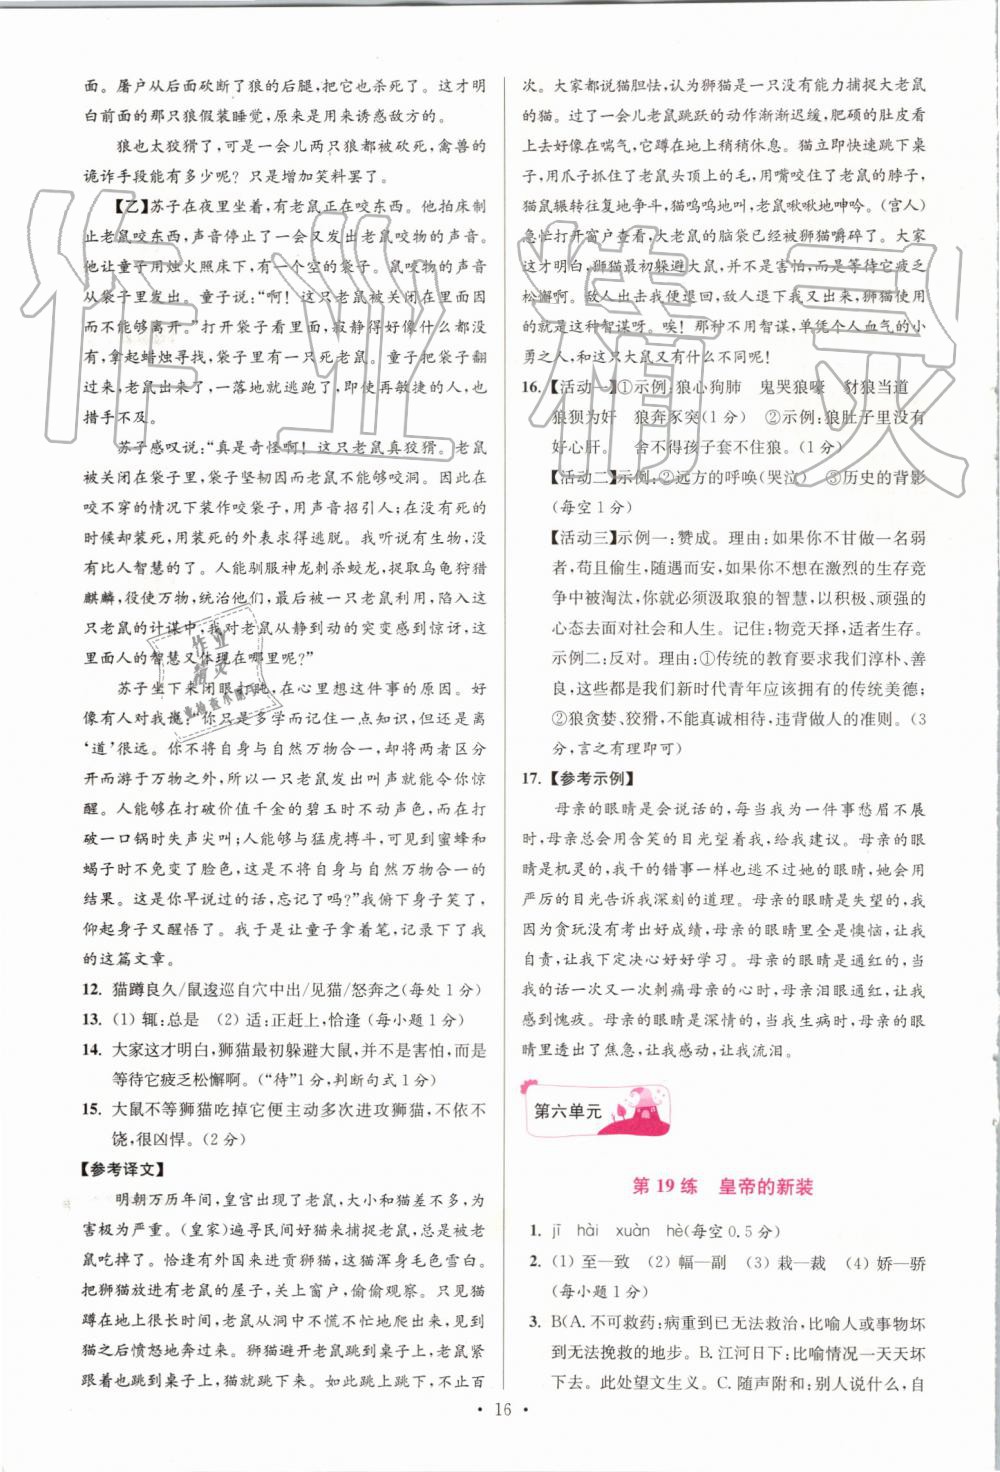 面。屠户从后面砍断了狼的后腿,把它也杀死了。这才明
白前面的那只狼假装睡觉,原来是用来诱惑敌方的。
狼也太狡猾了,可是一会儿两只狼都被砍死,禽兽的
诡诈手段能有多少呢?只是增加笑料罢了。
【乙】苏子在夜里坐着,有老鼠正在咬东西。他拍床制
止老鼠咬东西,声音停止了一会又发出老鼠咬物的声音。
他让童子用烛火照床下,有一个空的袋子。鼠咬物的声音
从袋子里发出。童子说:“啊!这只老鼠被关在里面因
而不能够离开。”打开袋子看里面,寂静得好像什么都没
有,拿起蜡烛寻找,发现袋子里有一只死老鼠。童子把袋子翻
过来,老鼠出来了,一落地就逃跑了,即使再敏捷的人,也
措手不及。
苏子感叹说:“真是奇怪啊!这只老鼠真狡猾。老鼠
被关在袋子里,袋子坚韧因而老鼠不能够咬洞。因此在
咬不穿的情况下装作咬袋子,用声音招引人;在没有死的
时候却装死,用装死的外表求得逃脱。我听说有生物,没有
比人有智慧的了。人能驯服神龙刺杀蛟龙,捉取乌龟狩猎
麒麟,役使万物,统治他们,最后却被一只老鼠利用,陷入这
只老鼠的计谋中,我对老鼠从静到动的突变感到惊讶,这
里面人的智慧又体现在哪里呢?”
苏子坐下来闭眼打盹,在心里想这件事的原因。好
像有人对我说:“你只是多学而记住一点知识,但还是离
‘道’很远。你不将自身与自然万物合一,却将两者区分
开而游于万物之外,所以一只老鼠发出叫声就能令你惊
醒。人能够在打破价值千金的碧玉时不动声色,而在打
破一口锅时失声尖叫;人能够与猛虎搏斗,可见到蜜蜂和
蝎子时不免变了脸色,这是不将自身与自然万物合一的
结果。这是你早说过的话,忘记了吗?”我俯下身子笑了,
仰起身子又醒悟了。我于是让童子拿着笔,记录下了我
的这篇文章。
12. 猫蹲良久/鼠逡巡自穴中出/见猫/怒奔之(每处1分)
13. (1)辄:总是 (2)适:正赶上,恰逢(每小题1分)
14. 大家这才明白,狮猫最初躲避大鼠,并不是害怕,而是
等待它疲乏松懈啊。(“待”1分,判断句式1分)
15. 大鼠不等狮猫吃掉它便主动多次进攻狮猫,不依不
饶,很凶悍。(2分)
【参考译文】
明朝万历年间,皇宫出现了老鼠,大小和猫差不多,为
害极为严重。(皇家)遍寻民间好猫来捕捉老鼠,都被老
鼠吃掉了。恰逢有外国来进贡狮猫,这猫浑身毛色雪白。
把狮猫放进有老鼠的屋子,关上窗户,偷偷观察。只见猫
蹲在地上很长时间,老鼠从洞中不慌不忙地爬出来,见到
猫之后愤怒地奔向猫。狮猫避开老鼠跳到桌子上,老鼠紧
跟着也跳到桌子上,猫就跳下来。如此跳上跳下,不止百
次。大家都说猫胆怯,认为狮猫是一只没有能力捕捉大老鼠
的猫。过了一会儿老鼠跳跃的动作渐渐迟缓,肥硕的肚皮看
上去好像在喘气,它蹲在地上稍稍休息。猫立即快速跳下桌
子,用爪子抓住老鼠头顶上的毛,用嘴咬住它的脖子,
猫鼠辗转往复地争斗,猫呜呜地叫,老鼠啾啾地呻吟。(宫人)
急忙打开窗户查看,大老鼠的脑袋已被狮猫嚼碎了。大家
这才明白,狮猫最初躲避大鼠,不是害怕,而是等待它疲乏
松懈啊。敌人出击我便退下,敌人退下我又出来,狮猫使用
的就是这种智谋呀。唉!那种不用智谋,单凭个人血气的小
勇之人,和这只大鼠又有什么不同呢!
16. 【活动一】①示例:狼心狗肺 鬼哭狼嚎 豺狼当道
狼狈为奸 狼奔豕突(1分) ②示例:狼肚子里没有
好心肝。 舍不得孩子套不住狼。(1分)
【活动二】示例:②远方的呼唤(哭泣) ③历史的背影
(每空1分)
【活动三】示例一:赞成。理由:如果你不甘做一名弱
者,苟且偷生,随遇而安,如果你不想在激烈的生存竞
争中被淘汰,你就必须汲取狼的智慧,以积极、顽强的
心态去面对社会和人生。记住:物竞天择,适者生存。
示例二:反对。理由:①传统的教育要求我们淳朴、善
良,这些都是我们新时代青年应该拥有的传统美德;
②狼贪婪、狡猾,不能真诚相待,违背做人的准则。(3
分,言之有理即可)
17. 【参考示例】
母亲的眼睛是会说话的,每当我为一件事愁眉不展
时,母亲总会用含笑的目光望着我,给我建议。母亲的眼
睛是机灵的,我干的错事一样也逃不过她的眼睛,她会用
严厉的目光告诉我深刻的道理。母亲的眼睛是失望的,我
因为贪玩没有考出好成绩,母亲的眼里全是懊恼,让我
自责,让我下定决心好好学习。母亲的眼睛是通红的,当
我的话一次又一次刺痛母亲的心时,母亲泪眼通红,让我
感到愧疚。母亲的眼睛是深情的,当我生病时,母亲的眼
睛里透出了焦急,让我感动,让我流泪。
第六单元
第19练 皇帝的新装
1. jī hài xuàn hè(每空0.5分)
2. (1)至—致 (2)幅—副 (3)栽—裁 (4)娇—骄
(每小题1分)
3. B(A.不可救药:病重到已无法救治,比喻人或事物坏
到无法挽救的地步。B.江河日下:比喻情况一天天坏
下去。此处望文生义。C.随声附和:别人说什么,自
· 16 ·
作业精灵